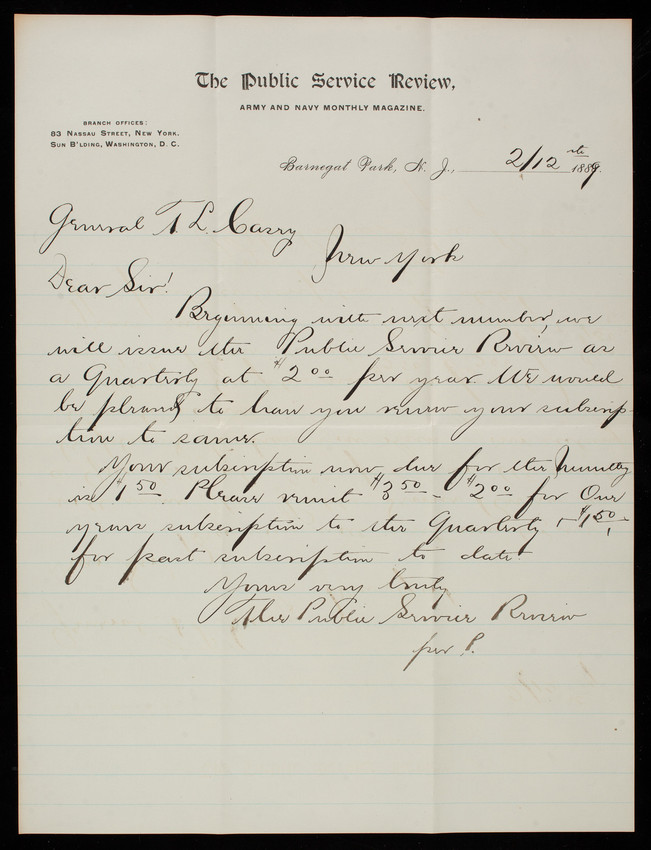 The Public Service Review,
ARMY AND NAVY MONTHLY MAGAZINE.
BRANCH OFFICES:
83 NASSAU STREET, NEW YORK.
SUN B'LDING, WASHINGTON, D. C.
Barnegat Park, N. J., 2/12 1889.
General T. L. Casey
New York
Dear Sir!
Beginning with next number, we
will issue the Public Service Review as
a Quarterly at $2.00 per year. We would
be pleased to have you renew your subscrip-
tion to same.
Your subscription now due for the Monthly
is $1.50. Please remit $3.50 - $2.00 for One
years subscription to the Quarterly, - $1.50 -
for past subscription to date.
Yours very truly
The Public Service Review
per P.